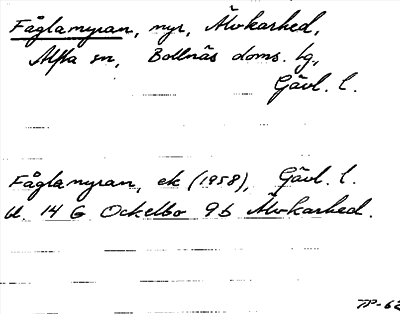 Fåglamyran, myr, Älvkarhed,
Alfta sn, Bollnäs doms. lg,
Gävl. l.
Fåglamyran, ek (1958), Gävl. l.
bl. 14 G Ockelbo 9b Älvkarhed.
TP-62